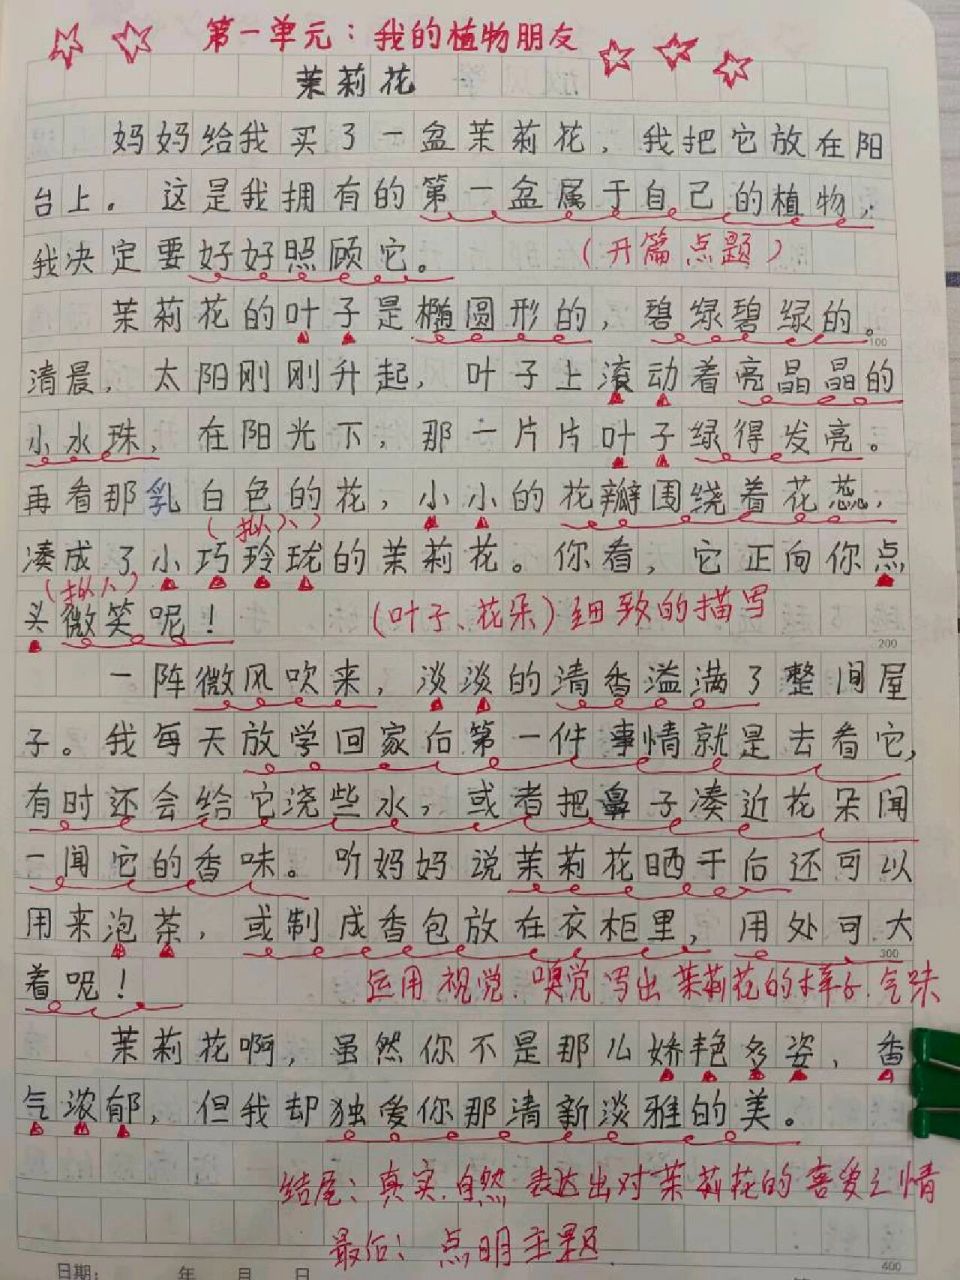 第一单元：我的植物朋友
茉莉花
妈妈给我买了一盆茉莉花，我把它放在阳
台上。这是我拥有的第一盆属于自己的植物，
我决定要好好照顾它。
（开篇点题）
茉莉花的叶子是椭圆形的，碧绿碧绿的。
100
清晨，太阳刚刚升起，叶子上滚动着亮晶晶的
小水珠，在阳光下，那一片片叶子绿得发亮。
再看那乳白色的花，小小的花瓣围绕着花蕊，
（拟人）
凑成了小巧玲珑的茉莉花。你看，它正向你点
（拟人）
头微笑呢！
（叶子、花朵）细致的描写
200
一阵微风吹来，淡淡的清香溢满了整间屋
子。我每天放学回家后第一件事情就是去看它，
有时还会给它浇些水，或者把鼻子凑近花朵闻
一闻它的香味。听妈妈说茉莉花晒干后还可以
用来泡茶，或制成香包放在衣柜里，用处可大
300
着呢！
运用视觉、嗅觉写出茉莉花的样子、气味
茉莉花啊，虽然你不是那么娇艳多姿、香
气浓郁，但我却独爱你那清新淡雅的美。
结尾：真实、自然表达出对茉莉花的喜爱之情
最后：点明主题
日期： 年 月 日
400